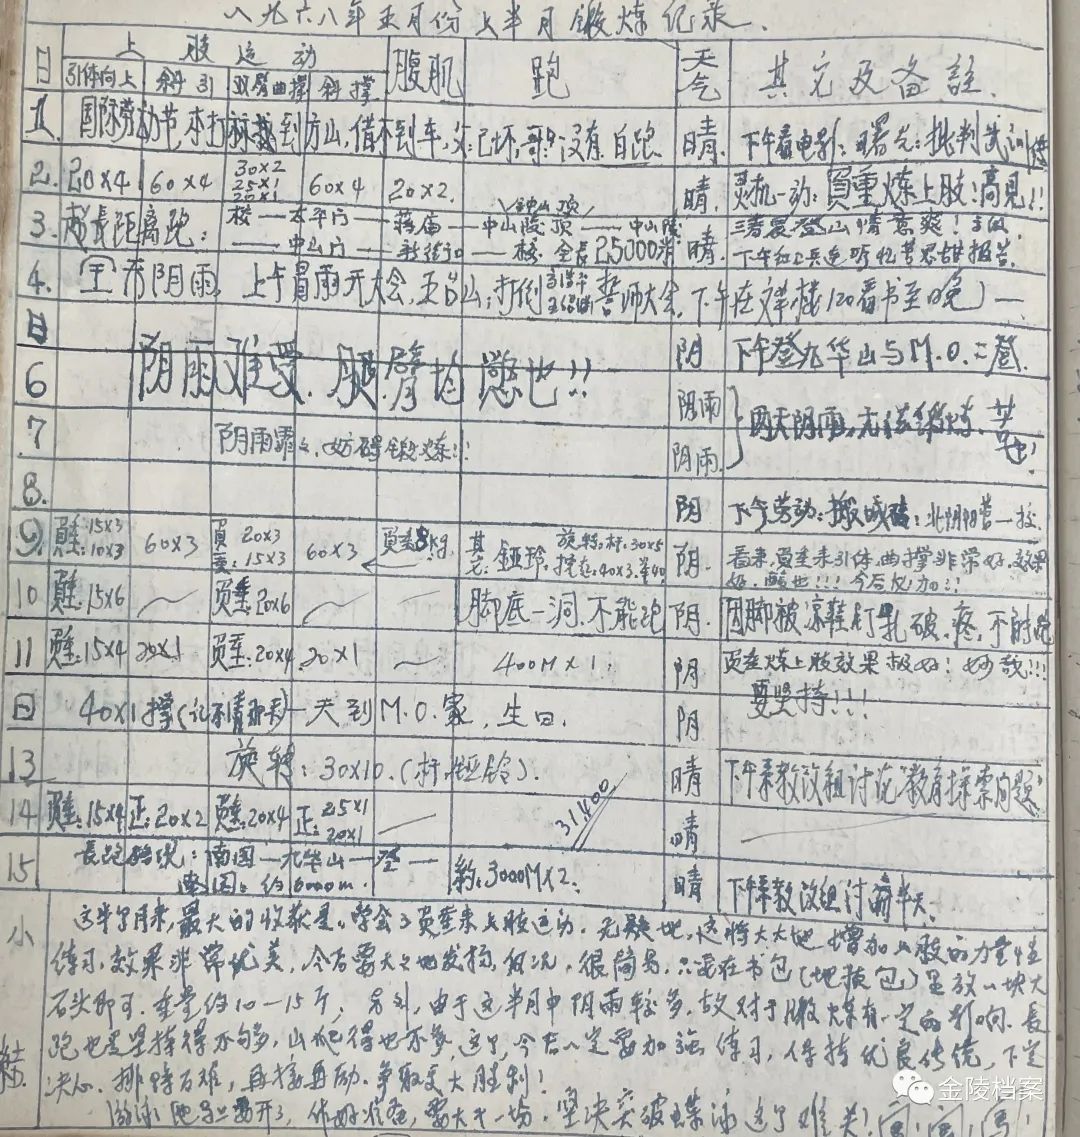 一九六八年五月份上半月锻炼记录.
日 上肢运动 腹肌 跑 天气 其它及备註.
引体向上 斜引 双臂曲撑 斜撑
1. 国际劳动节,本打算到方山,借不到车,父已坏,哥没有.自跑. 晴. 下午看电影:曙光:批判武训传
2. 20×4 60×4 30×2 25×1 20×1 60×4 20×2. 晴. 灵机一动:負重炼上肢!高见!!
3. 越長距離跑: 校—太平门—蒋庙—中山陵顶—中山陵
—中山门—新街口—校. 全長25000米 晴. 清晨登山情意爽!
下午红卫兵连听忆苦思甜报告.
4. 全市阴雨. 上午冒雨开大会,五台山:打倒 誓师大会.下午在文革楼120看书至晚)—
日 阴 下午登九华山与M.O.二登.
6 阴雨难受.腿.臂均憊也!! 阴雨
7 阴雨霏々,妨碍锻炼!! 阴雨 四天阴雨,无法锻炼.苦也!
8. 阴 下午劳动:搬城砖:北阴阳营一校.
9 負重:15×3 10×3 60×3 負重 20×3 15×3 60×3 負重8kg. 其它:铔玲. 旋转.标:30×5 40×3.举40 阴. 看来,負重来引体.曲撑非常好.效果
好.酸也!!!今后反加!!
10 負重:15×6 負重:20×6 脚底一洞.不能跑 阴. 因脚被凉鞋钉軋破.疼,不能跑
11 負重:15×4 20×1 負重:20×4 20×1 400M×1; 阴 負重炼上肢效果极好!妙哉!!!
要坚持!!!
日 40×1撑(记不清那天)一天到M.O.家,生日. 阴
13 旋转:30×10.(标铔铃). 晴 下午来教改组讨论"教育探索问题"
14 負重:15×4 正:20×2 負重:20×4 正:25×1 20×1 31400 晴
15 長跑路线:南园—九华山—登—
南园:约6000m. 約:3000M×2. 晴 下午来教改组讨論半天.
小结. 这半个月来,最大的收获是:学会了負重来上肢运动.无疑地,这将大大地增加上肢的力量性
练习.效果非常优美,今后要大々地发扬.何况,很简易.只要在书包(地板包)里放一块大
石头即可.重量约10—15斤,另外,由于这半月中阴雨较多,故对于 炼有一定的影响.長
跑也是坚持得不够多,山爬得也不多,这个,今后一定要加强练习,保持优良传统,下定
决心.排除万难,再接再励.争取更大胜利!
游泳池马上要开了,作好准备,要大干一场.坚决突破蝶泳这个难关!
金陵档案